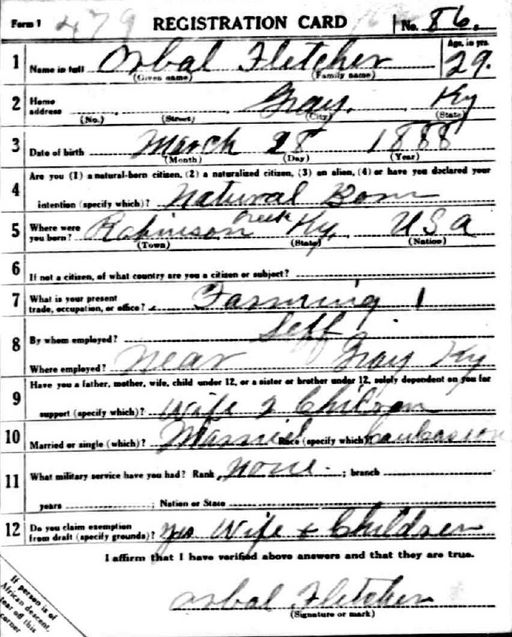 Form 1 479 REGISTRATION CARD No. 86.
1 Name in full Orbal Fletcher Age, in yrs. 29.
(Given name) (Family name)
2 Home address Gray, Ky
(No.) (Street) (City) (State)
3 Date of birth March 28 1888
(Month) (Day) (Year)
Are you (1) a natural-born citizen, (2) a naturalized citizen, (3) an alien, (4) or have you declared your
4 intention (specify which)? Natural Born
5 Where were you born? Robinson Creek Ky, U S A
(Town) (State) (Nation)
6 If not a citizen, of what country are you a citizen or subject?
7 What is your present trade, occupation, or office? Farming 1
8 By whom employed? Self
Where employed? Near Gray Ky
Have you a father, mother, wife, child under 12, or a sister or brother under 12, solely dependent on you for
9 support (specify which)? Wife & Children
10 Married or single (which)? Married Race (specify which)? Caubasion
11 What military service have you had? Rank None. ; branch
years ; Nation or State
12 Do you claim exemption from draft (specify grounds)? Yes Wife & Children
I affirm that I have verified above answers and that they are true.
Orbal Fletcher
(Signature or mark)
If person is of
African descent,
tear off this
corner